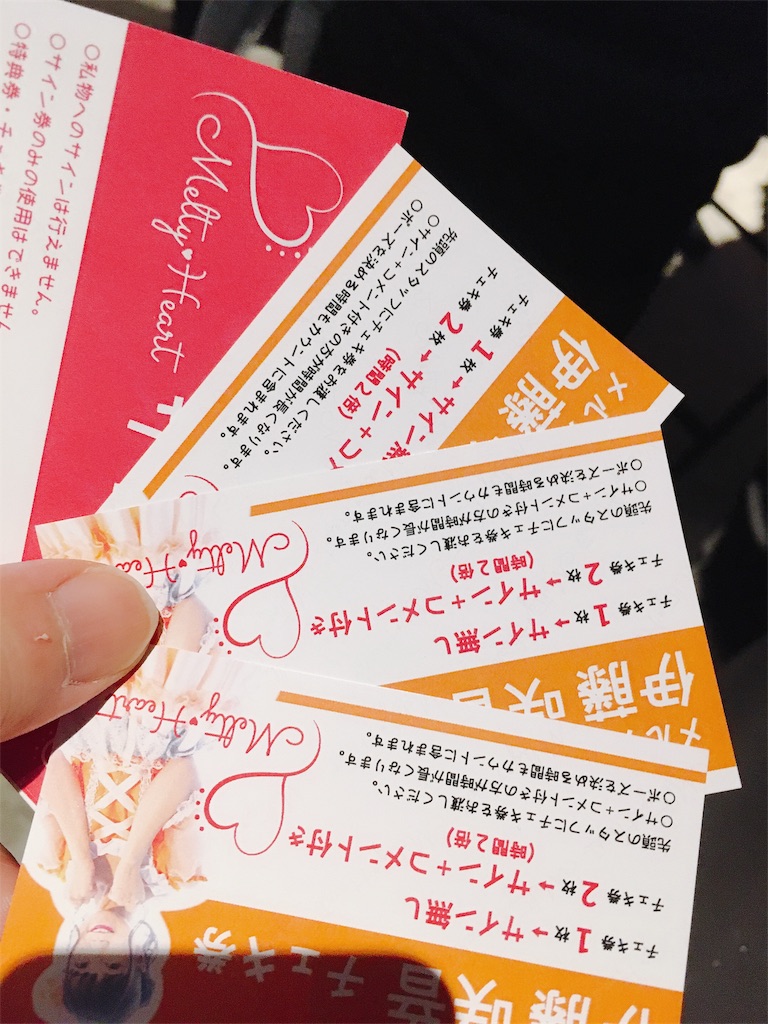 ○私物へのサインは行えません。
○サイン券のみの使用はできません
○特典券・チェキ
Melty♥Heart
メル
伊藤
チェキ券 1枚→サイン無
チェキ券 2枚→サイン+コ
(時間2倍)
先頭のスタッフにチェキ券をお渡しください。
○サイン+コメント付きの方が時間が長くなります。
○ポーズを決める時間もカウントに含まれます。
メル
伊藤 咲音
チェキ券 1枚→サイン無し
チェキ券 2枚→サイン+コメント付き
(時間2倍)
先頭のスタッフにチェキ券をお渡しください。
○サイン+コメント付きの方が時間が長くなります。
○ポーズを決める時間もカウントに含まれます。
Melty♥Hear
伊藤 咲音 チェキ券
チェキ券 1枚→サイン無し
チェキ券 2枚→サイン+コメント付き
(時間2倍)
先頭のスタッフにチェキ券をお渡しください。
○サイン+コメント付きの方が時間が長くなります。
○ポーズを決める時間もカウントに含まれます。
Melty♥Heart